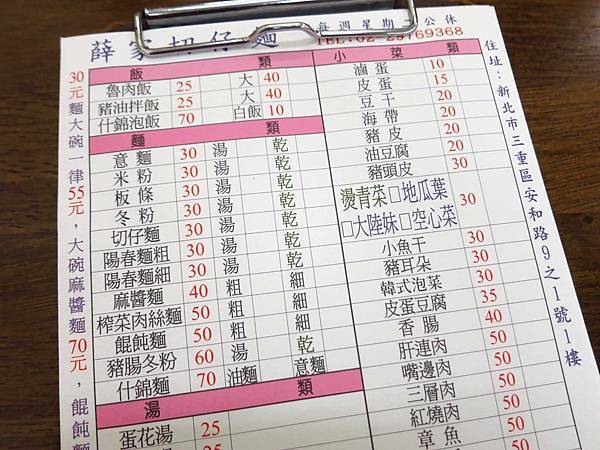 薛家切仔麵
每週星期二公休
TEL:02-29769368
飯 類
魯肉飯 25 大 40
豬油拌飯 25 大 40
什錦泡飯 70 白飯 10
麵 類
意麵 30 湯 乾
米粉 30 湯 乾
板條 30 湯 乾
冬粉 30 湯 乾
切仔麵 30 湯 乾
陽春麵粗 30 湯 乾
陽春麵細 30 湯 乾
麻醬麵 40 粗 細
榨菜肉絲麵 50 粗 細
餛飩麵 50 粗 細
豬腸冬粉 60 湯 乾
什錦麵 70 油麵 意麵
湯 類
蛋花湯 25
小菜類
滷蛋 10
皮蛋 15
豆干 20
海帶 20
豬皮 20
油豆腐 20
豬頭皮 30
燙青菜□地瓜葉
□大陸妹□空心菜 30
小魚干 30
豬耳朵 30
韓式泡菜 30
皮蛋豆腐 35
香腸 40
肝連肉 50
嘴邊肉 50
三層肉 50
紅燒肉 50
章魚 50
30元麵大碗一律55元，大碗麻醬麵70元，餛飩麵
住址：新北市三重區安和路9之1號1樓